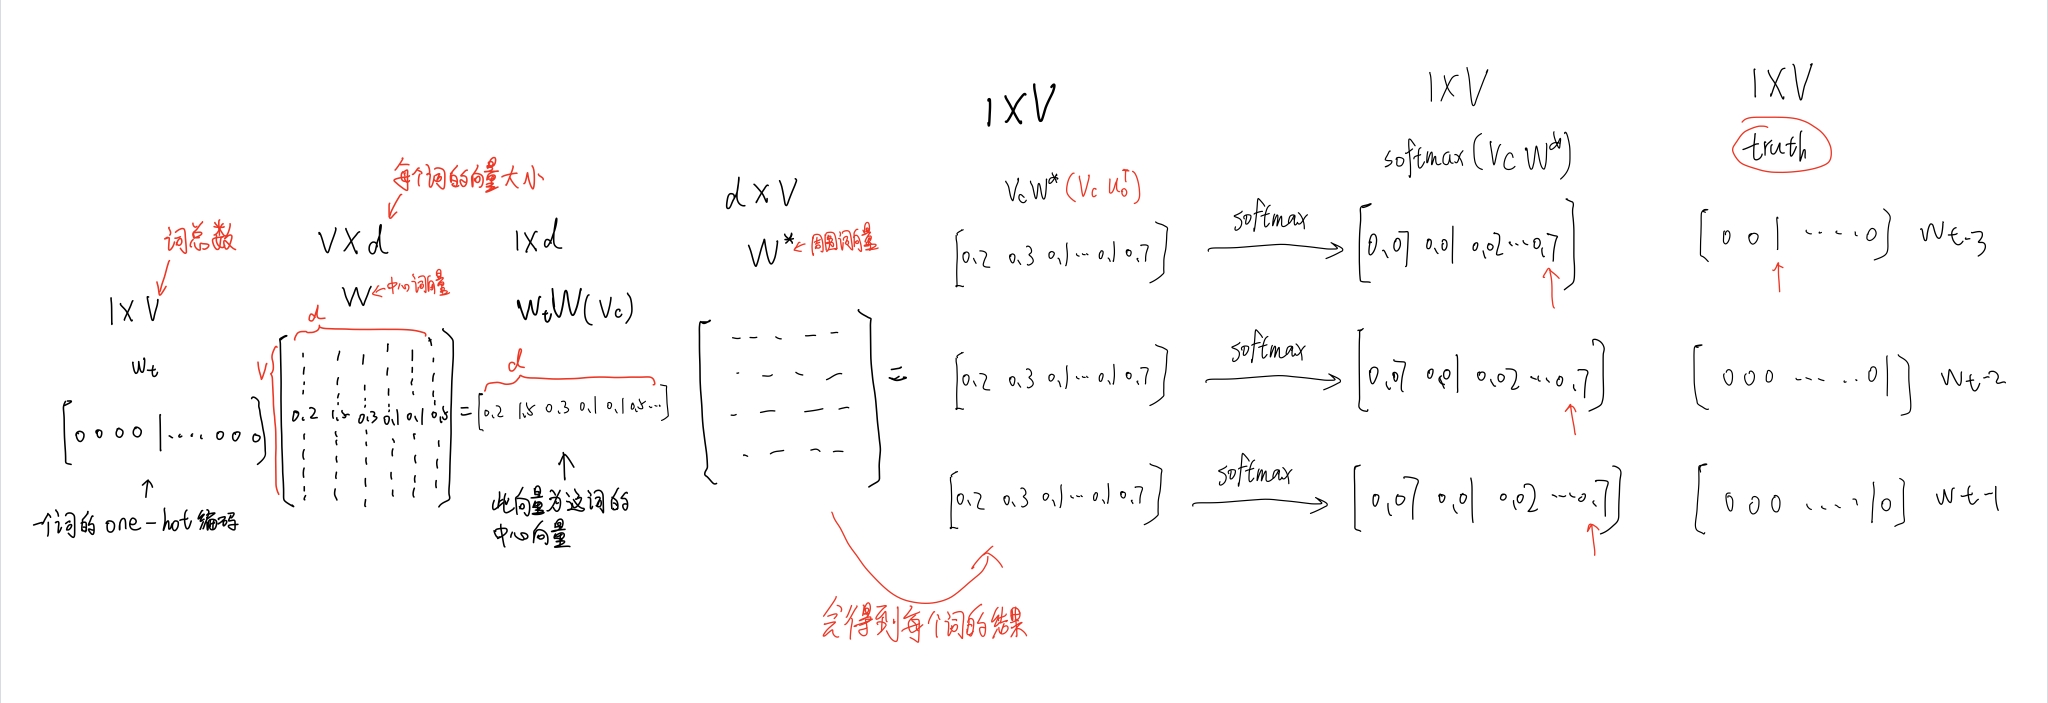 词总数
1×V
w_t
[0 0 0 0 1 .... 0 0 0]
一个词的one-hot编码
每个词的向量大小
V×d
W←中心词向量
d
V
0.2 1.5 0.3 0.1 0.1 0.5
=
1×d
w_tW(V_c)
d
[0.2 1.5 0.3 0.1 0.1 0.5...]
此向量为这词的
中心向量
d×V
W*←周围词向量
=
会得到每个词的结果
1×V
V_cW*(V_c u_o^T)
[0.2 0.3 0.1...0.1 0.7]
[0.2 0.3 0.1...0.1 0.7]
[0.2 0.3 0.1...0.1 0.7]
softmax
softmax
softmax
1×V
softmax(V_c W*)
[0.07 0.01 0.02...0.7]
[0.07 0.01 0.02...0.7]
[0.07 0.01 0.02...0.7]
1×V
truth
[0 0 1 .....0] w_t-3
[0 0 0 ......0 1] w_t-2
[0 0 0 .....1 0] w_t-1